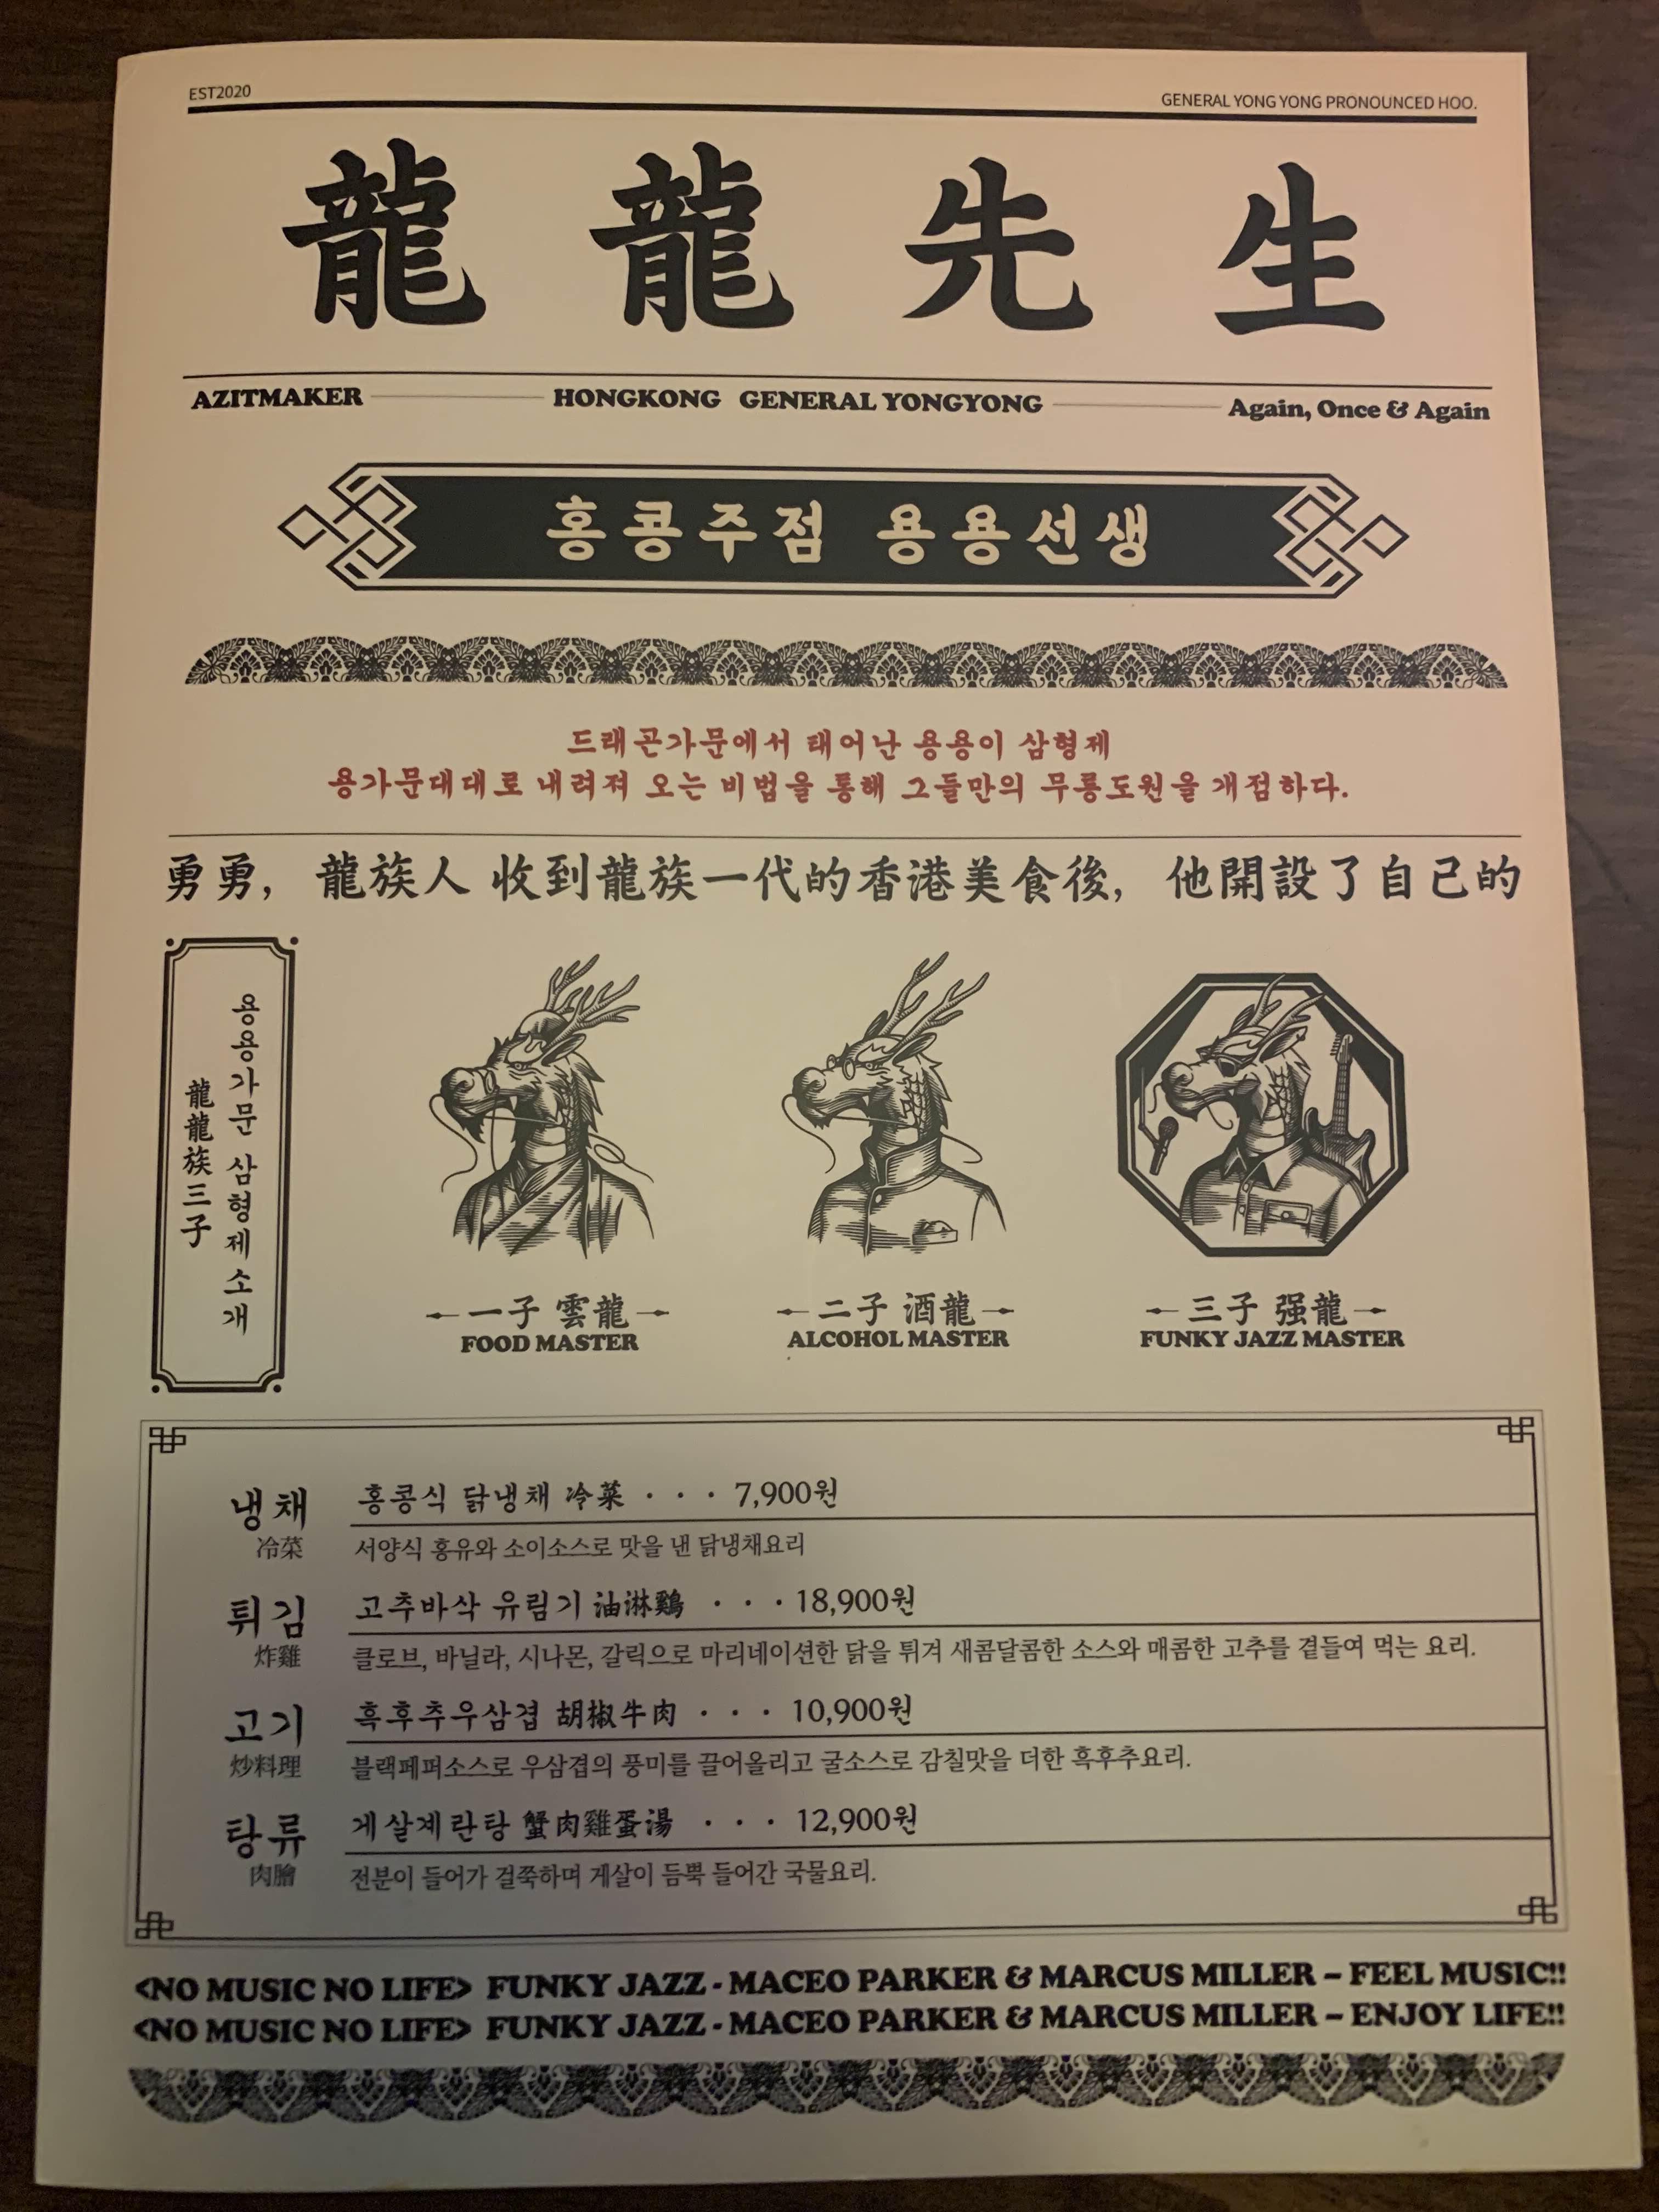 EST2020
GENERAL YONG YONG PRONOUNCED HOO.
龍龍先生
AZITMAKER HONGKONG GENERAL YONGYONG Again, Once & Again
홍콩주점 용용선생
드래곤가문에서 태어난 용용이 삼형제
용가문대대로 내려져 오는 비법을 통해 그들만의 무릉도원을 개점하다.
勇勇, 龍族人 收到龍族一代的香港美食後, 他開設了自己的
용용가문 삼형제 소개
龍龍族三子
一子 雲龍
FOOD MASTER
二子 酒龍
ALCOHOL MASTER
三子 强龍
FUNKY JAZZ MASTER
냉채 홍콩식 닭냉채 冷菜 · · · 7,900원
冷菜 서양식 홍유와 소이소스로 맛을 낸 닭냉채요리
튀김 고추바삭 유림기 油淋鷄 · · · 18,900원
炸雞 클로브, 바닐라, 시나몬, 갈릭으로 마리네이션한 닭을 튀겨 새콤달콤한 소스와 매콤한 고추를 곁들여 먹는 요리.
고기 흑후추우삼겹 胡椒牛肉 · · · 10,900원
炒料理 블랙페퍼소스로 우삼겹의 풍미를 끌어올리고 굴소스로 감칠맛을 더한 흑후추요리.
탕류 게살계란탕 蟹肉雞蛋湯 · · · 12,900원
肉膾 전분이 들어가 걸쭉하며 게살이 듬뿍 들어간 국물요리.
<NO MUSIC NO LIFE> FUNKY JAZZ - MACEO PARKER & MARCUS MILLER – FEEL MUSIC!!
<NO MUSIC NO LIFE> FUNKY JAZZ - MACEO PARKER & MARCUS MILLER – ENJOY LIFE!!